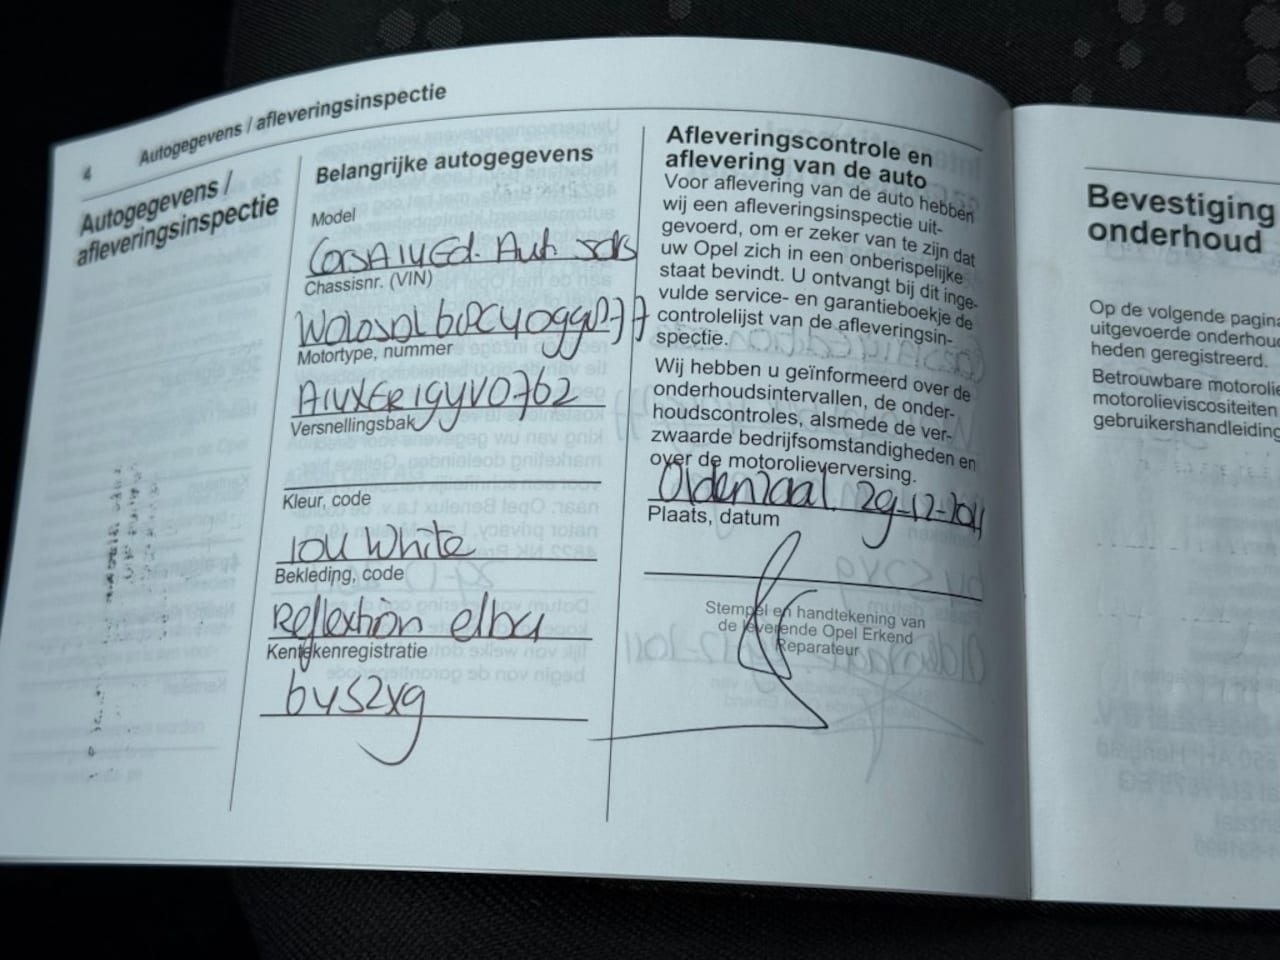 4
Autogegevens / afleveringsinspectie
Autogegevens /
afleveringsinspectie
Belangrijke autogegevens
Model
CORSA 1.4 Ed. Aut. 5drs
Chassisnr. (VIN)
W0L0SDL68C4099077
Motortype, nummer
A14XER19YV0762
Versnellingsbak
Kleur, code
10U White
Bekleding, code
Reflextion elba
Kentekenregistratie
64S2X9
Afleveringscontrole en
aflevering van de auto
Voor aflevering van de auto hebben
wij een afleveringsinspectie uit-
gevoerd, om er zeker van te zijn dat
uw Opel zich in een onberispelijke
staat bevindt. U ontvangt bij dit inge-
vulde service- en garantieboekje de
controlelijst van de afleveringsin-
spectie.
Wij hebben u geïnformeerd over de
onderhoudsintervallen, de onder-
houdscontroles, alsmede de ver-
zwaarde bedrijfsomstandigheden en
over de motorolieverversing.
Oldenzaal. 29-12-2011
Plaats, datum
Stempel en handtekening van
de leverende Opel Erkend
Reparateur
Bevestiging
onderhoud
Op de volgende pagina
uitgevoerde onderhou
heden geregistreerd.
Betrouwbare motorolie
motorolieviscositeiten
gebruikershandleiding